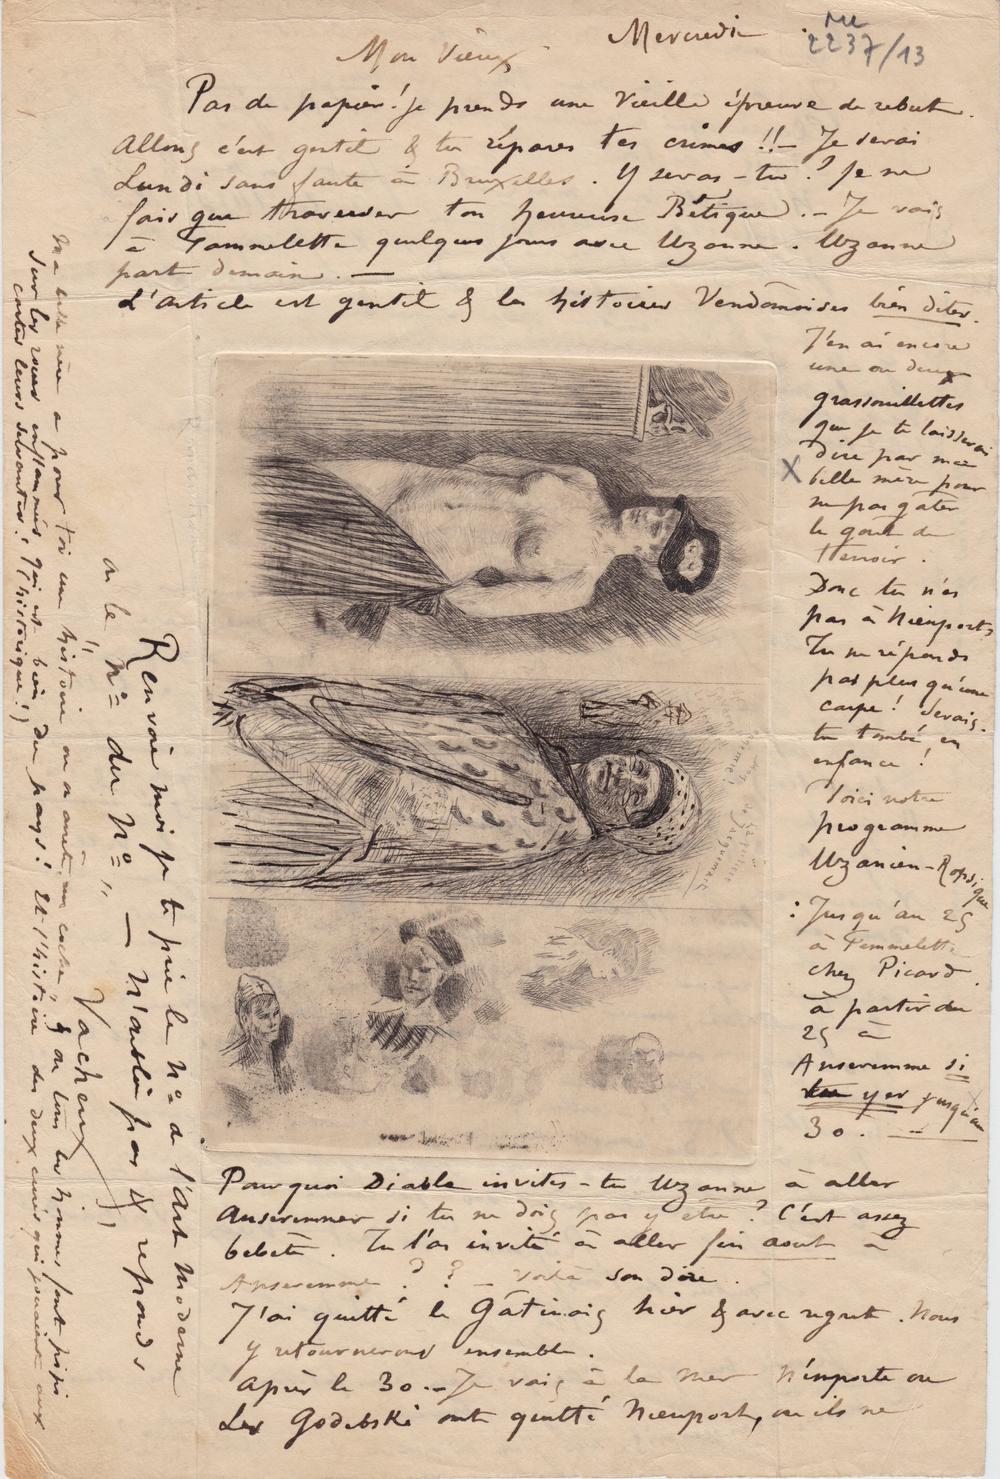 Mercredi
ML
2237/13
Mon Vieux
Pas de papier! je prends une vieille épreuve de rebut.
Allons c'est gentil & tu répares tes crimes!!— Je serai
Lundi sans faute à Bruxelles. Y seras-tu? Je ne
fais que traverser ton heureuse Bétique.— Je vais
à Tammelette quelques jours avec Uzanne. Uzanne
part demain.—
L'article est gentil & les histoires Vendômoises bien dites.
J'en ai encore
une ou deux
grassouillettes
que je te laisserai
dire par ma
X belle mère pour
ne pas gâter
le goût du
Terroir.
Donc tu n'es
pas à Nieuport.
Tu ne réponds
pas plus qu'une
carpe! Serais-
tu tombé en
enfance!
Voici notre
programme
Uzanien-Ropsique
: Jusqu'au 25
à Femmelette
chez Picard.
à partir du
25 à
Anseremme si
tu y es jusqu'au
30.—
Pourquoi Diable invites-tu Uzanne à aller
Anseremmer si tu ne dois pas y être? C'est assez
bebête. Tu l'as invité à aller fin aout à
Anseremme??— voilà son dire.
J'ai quitté le Gâtinais hier & avec regret. Nous
y retournerons ensemble.
Après le 30.— Je vais à la mer n'importe ou
Les Godebski ont quitté Nieuport, ou ils ne
Renvoie moi je te prie le No de l'art Moderne
ou le No du No" — N'oublie pas & reponds
Ma belle mère a pour toi une histoire ou a
& ou tous les hommes font pipi
sur les roues enflammées qui est bien du pays! Et l'histoire des deux curés qui jouaient aux
cartes leurs servantes! (historique!)